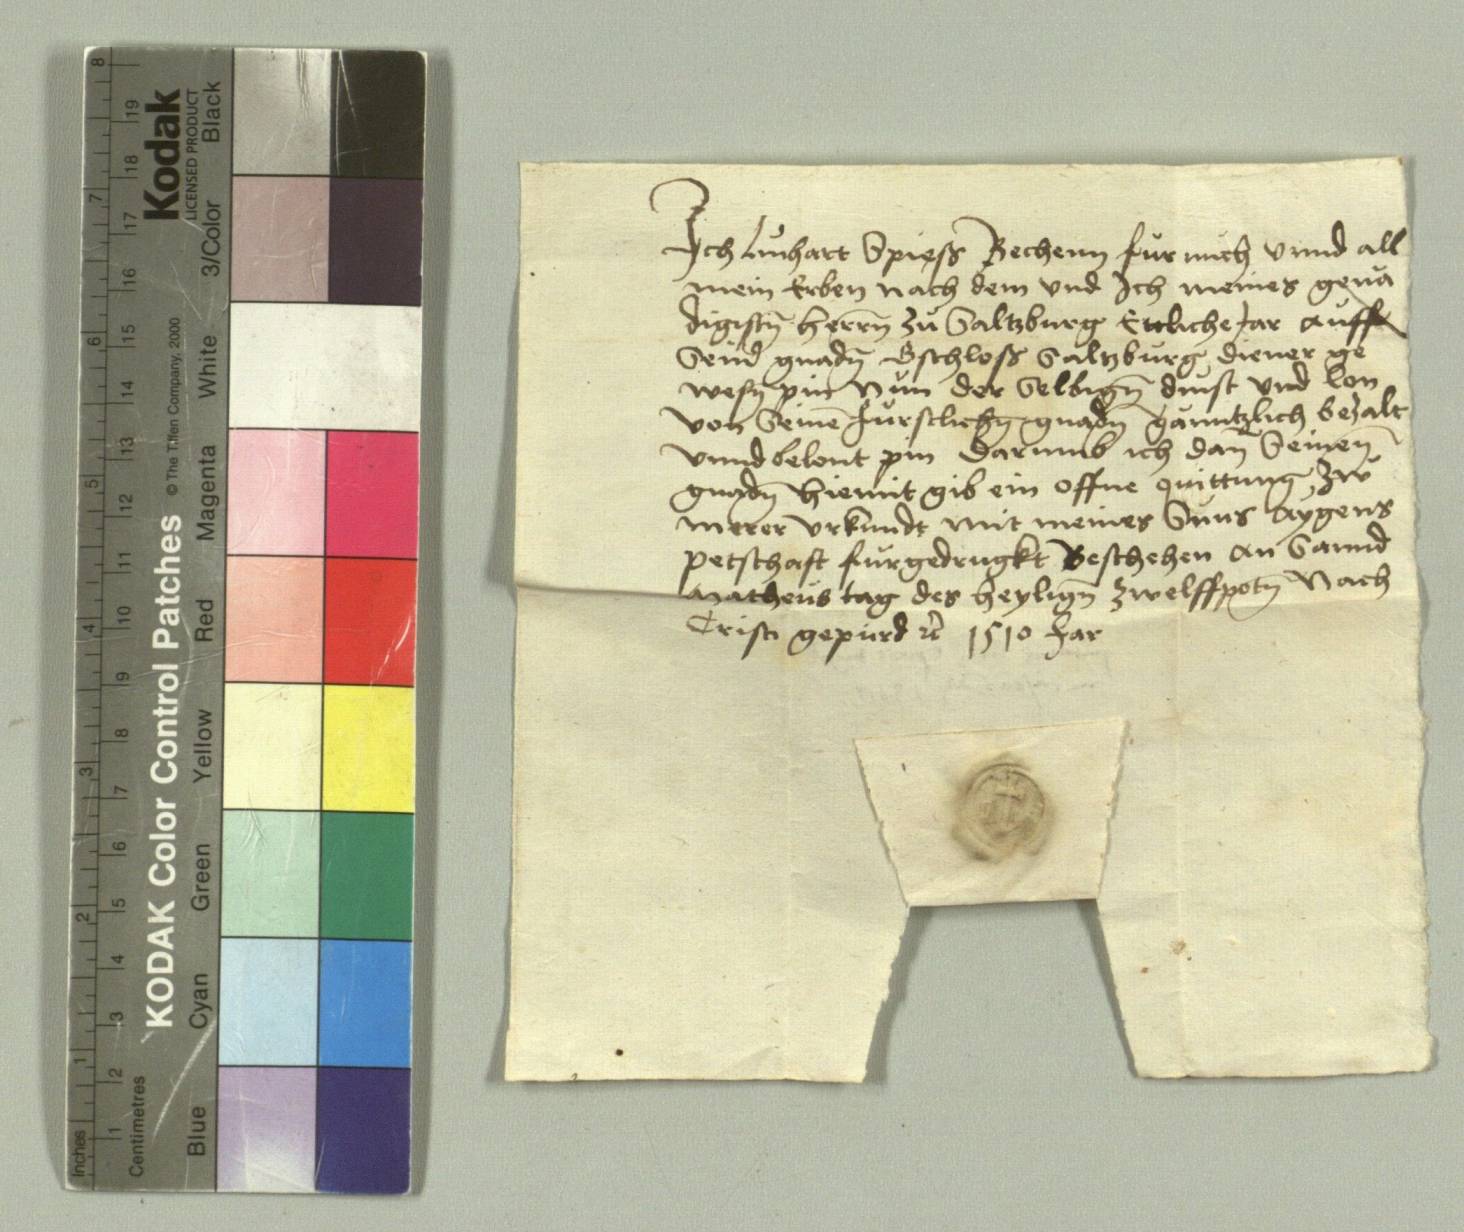 KODAK Color Control Patches
© The Tiffen Company, 2000
Kodak
LICENSED PRODUCT
Inches
1 2 3 4 5 6 7 8
Centimetres
1 2 3 4 5 6 7 8 9 10 11 12 13 14 15 16 17 18 19
Blue
Cyan
Green
Yellow
Red
Magenta
White
3/Color
Black
Ich Linhart Spieß Bechenn fur mich vnnd all
mein Erben nach dem vnd Ich meines gena
digistn herrn zu Saltzburg Ettliche Jar auff
Seind gnadn Gschloss Saltzburg diener ge
wesn pin Nun der Selbign dinst vnd lon
von Seine furstlichn gnadn gänntzlich bezalt
vnnd belont pin Darumb ich dan Seinen
gnadn hiemit gib ein offne quittung zw
merer vrkundt mit meines Suns aygens
petschaft furgedrugkt Beschehen an Sannd
Matheus tag des heylign zwelffpotn Nach
Cristi gepurd 1510 Jar